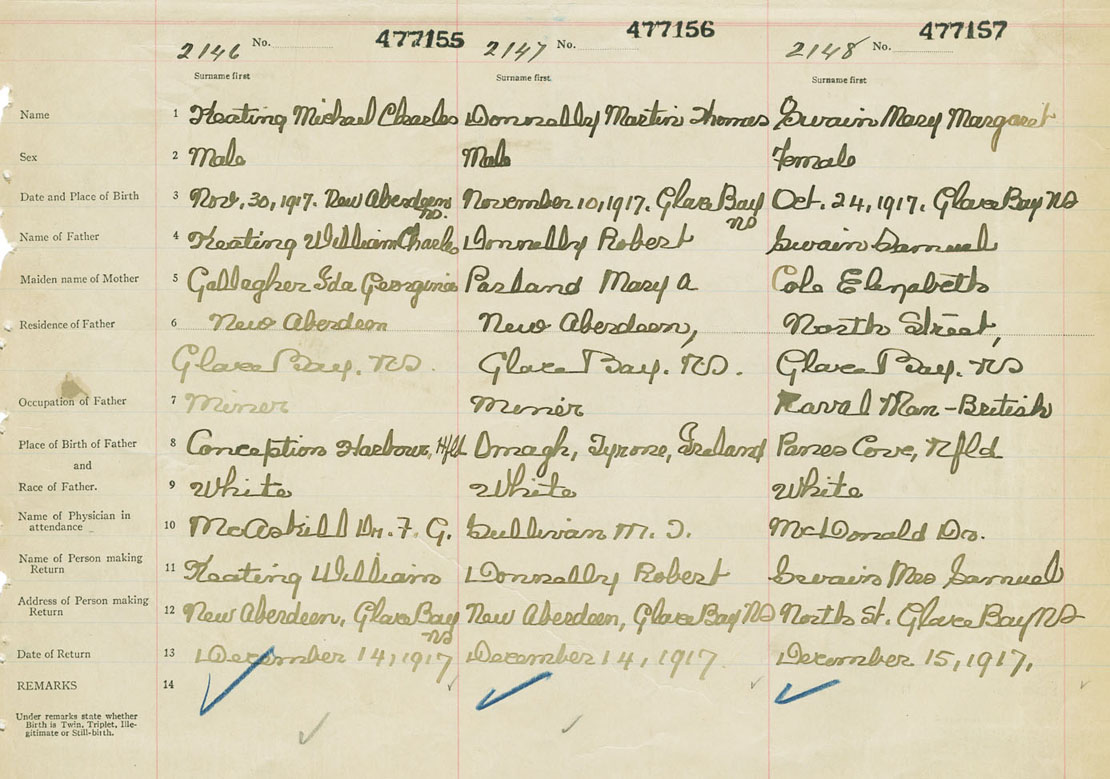 2146 No. 477155 2147 No. 477156 2148 No. 477157
Surname first Surname first. Surname first
Name 1 Keating Michael Charles Donnelly Martin Thomas Swain Mary Margaret
Sex 2 Male Male Female
Date and Place of Birth 3 Nov. 30, 1917. New Aberdeen November 10, 1917. Glace Bay Oct. 24, 1917. Glace Bay NS
NS. NS
Name of Father 4 Keating William Charles Donnelly Robert Swain Samuel
Maiden name of Mother 5 Gallagher Ida Georgina Mary A Cole Elizabeth
Residence of Father 6 New Aberdeen New Aberdeen, North Street,
Glace Bay. NS. Glace Bay. NS. Glace Bay. NS
Occupation of Father 7 Miner Miner Naval Man - British
Place of Birth of Father 8 Conception Harbour, Nfld Omagh, Tyrone, Ireland Cove, Nfld
and
Race of Father. 9 White White White
Name of Physician in
attendance 10 McAskill Dr. F. G. Sullivan M. T. McDonald Dr.
Name of Person making
Return 11 Keating William Donnelly Robert Swain Mrs Samuel
Address of Person making
Return 12 New Aberdeen, Glace Bay New Aberdeen, Glace Bay NS North St. Glace Bay NS
NS
Date of Return 13 December 14, 1917 December 14, 1917 December 15, 1917.
REMARKS 14
Under remarks state whether
Birth is Twin, Triplet, Ille-
gitimate or Still-birth.